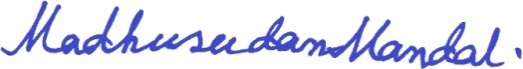 Madhusudan Mandal.